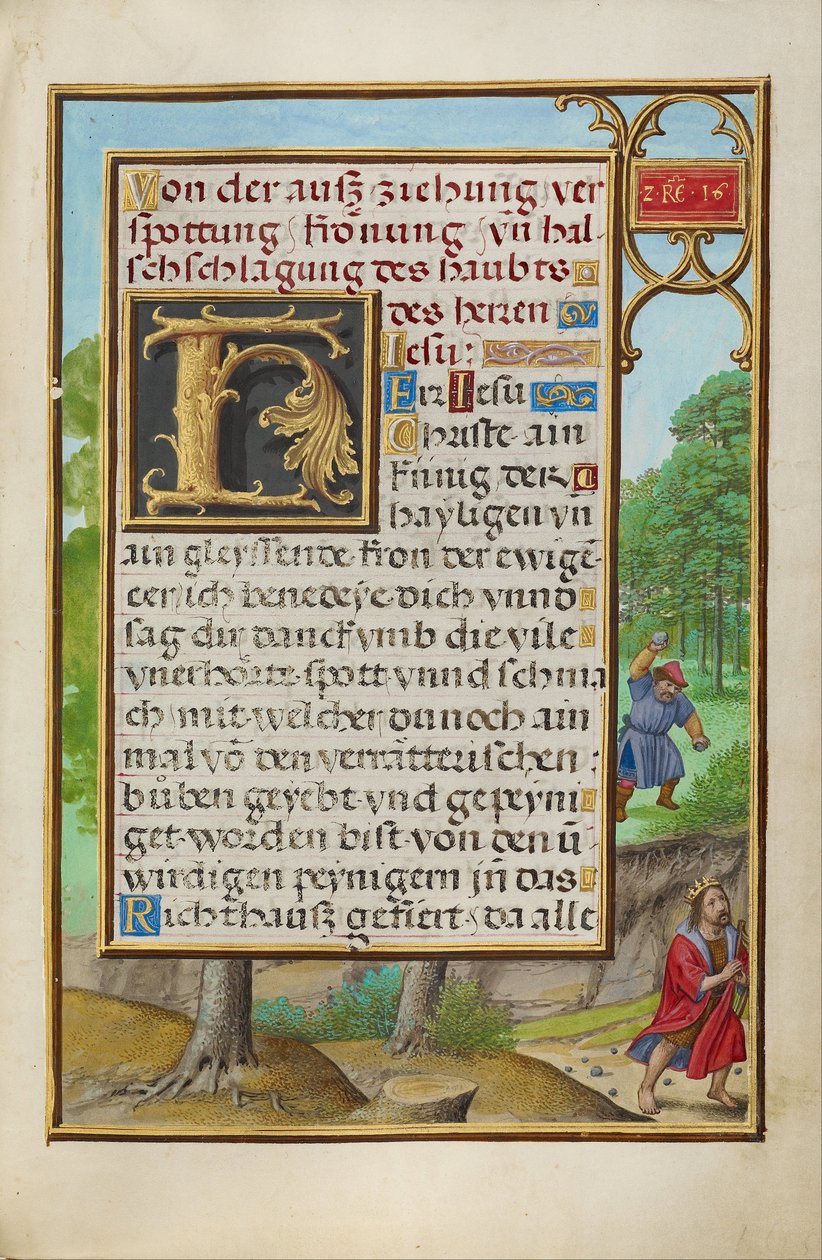 Von der aufz ziehung ver
spottung / krönung / vn̄ hal-
schschlagung des haubts
des herren
Iesu:
·Z·RE·16·
HErr Iesu
Christe ain
künig der
hayligen vn̄
ain gleyssende kron der ewigē
eer / ich benedeye dich vnnd
sag dir danck vmb die vile
vnerhörte spott vnnd schma
ch / mit welcher du noch ain
mal vō den verrätterischen:
bůben geyebt vnd gepeyni
get worden bist von den ū-
wirdigen peynigern jn̄ das
Richthausz gefiert / da alle